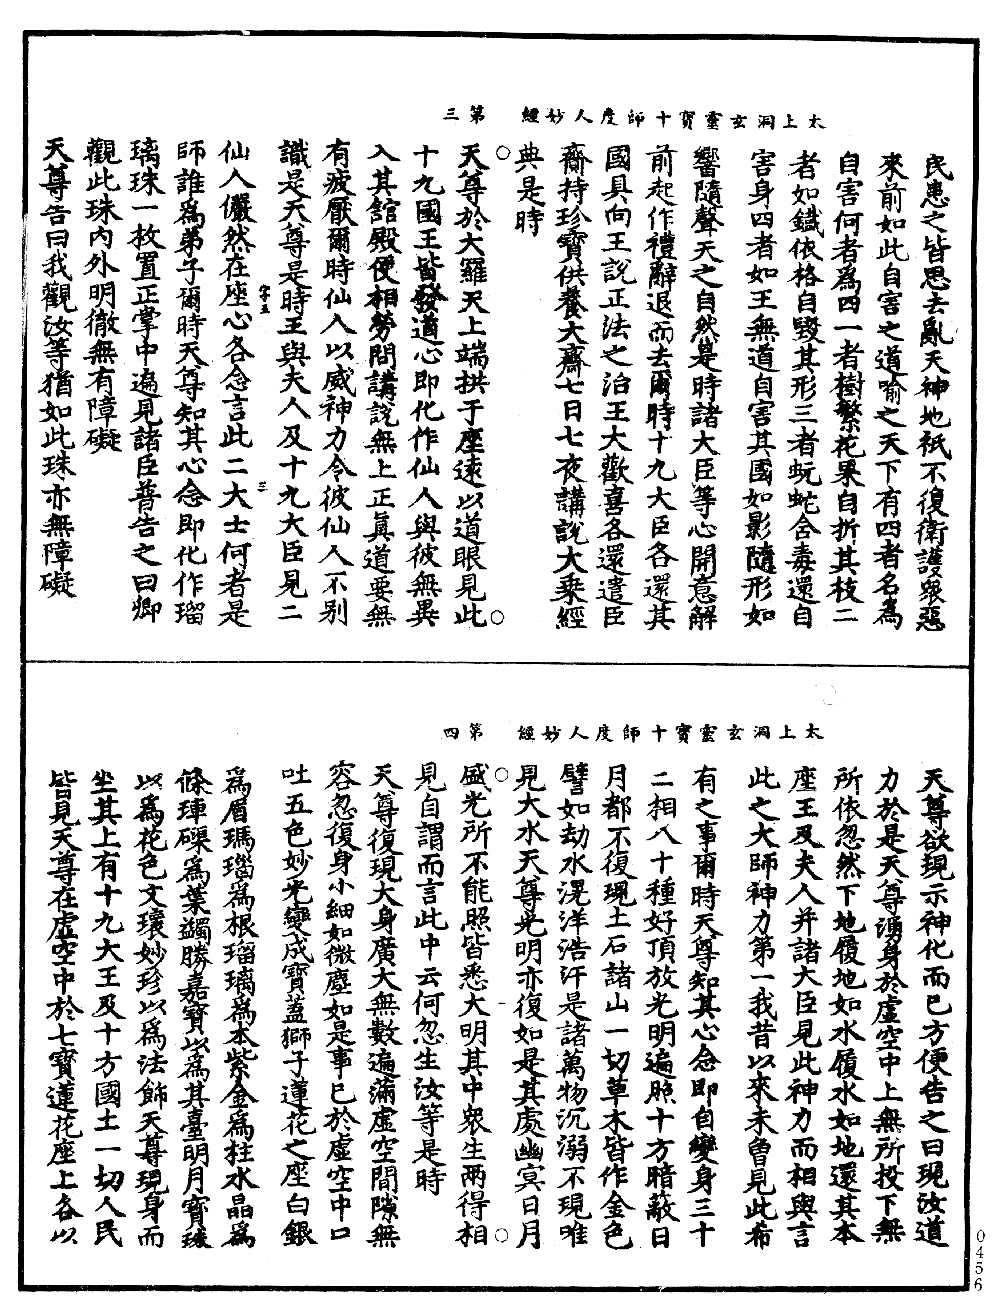 民患之皆思去亂天神地祇不復衛護衆惡
來前如此自害之道喻之天下有四者名為
自害何者為四一者樹繁花果自折其枝二
者如鐵依格自毀其形三者蚖蛇含毒還自
害身四者如王無道自害其國如影隨形如
太上洞玄靈寳十師度人妙經　第三
響隨聲天之自然是時諸大臣等心開意解
前起作禮辭退而去爾時十九大臣各還其
國具向王說正法之治王大歡喜各還遣臣
齋持珍寶供養大齋七日七夜講說大乘經
典是時
天尊於大羅天上端拱于座遠以道眼見此
十九國王皆發道心即化作仙人與彼無異
入其舘殿便相勞問講說無上正真道要無
有疲厭爾時仙人以威神力令彼仙人不别
識是天尊是時王與夫人及十九大臣見二
字五
三
仙人儼然在座心各念言此二大士何者是
師誰為弟子爾時天尊知其心念即化作瑠
璃珠一枚置正掌中遍見諸臣普告之曰卿
觀此珠内外明徹無有障礙
天尊告曰我觀汝等猶如此珠亦無障礙
天尊欲現示神化而已方便告之曰現汝道
力於是天尊湧身於虚空中上無所投下無
所依忽然下地履地如水履水如地還其本
座王及夫人并諸大臣見此神力而相與言
此之大師神力第一我昔以來未曽見此希
太上洞玄靈寳十師度人妙經　第四
有之事爾時天尊知其心念即自變身三十
二相八十種好頂放光明遍照十方暗蔽日
月都不復現土石諸山一切草木皆作金色
譬如劫水滉洋浩汗是諸萬物沉溺不現唯
見大水天尊光明亦復如是其處幽冥日月
威光所不能照皆悉大明其中衆生兩得相
見自謂而言此中云何忽生汝等是時
天尊復現大身廣大無數遍滿虚空間隙無
容忽復身小細如微塵如是事已於虚空中口
吐五色妙光變成寶蓋獅子蓮花之座白銀
為眉瑪瑙為根瑠璃為本紫金為柱水晶為
條璉磲為葉蠲勝嘉寶以為其臺明月寶珠
以為花色文瓌妙珍以為法飾天尊現身而
坐其上有十九大王及十方國土一切人民
皆見天尊在虚空中於七寶蓮花座上各以
0456